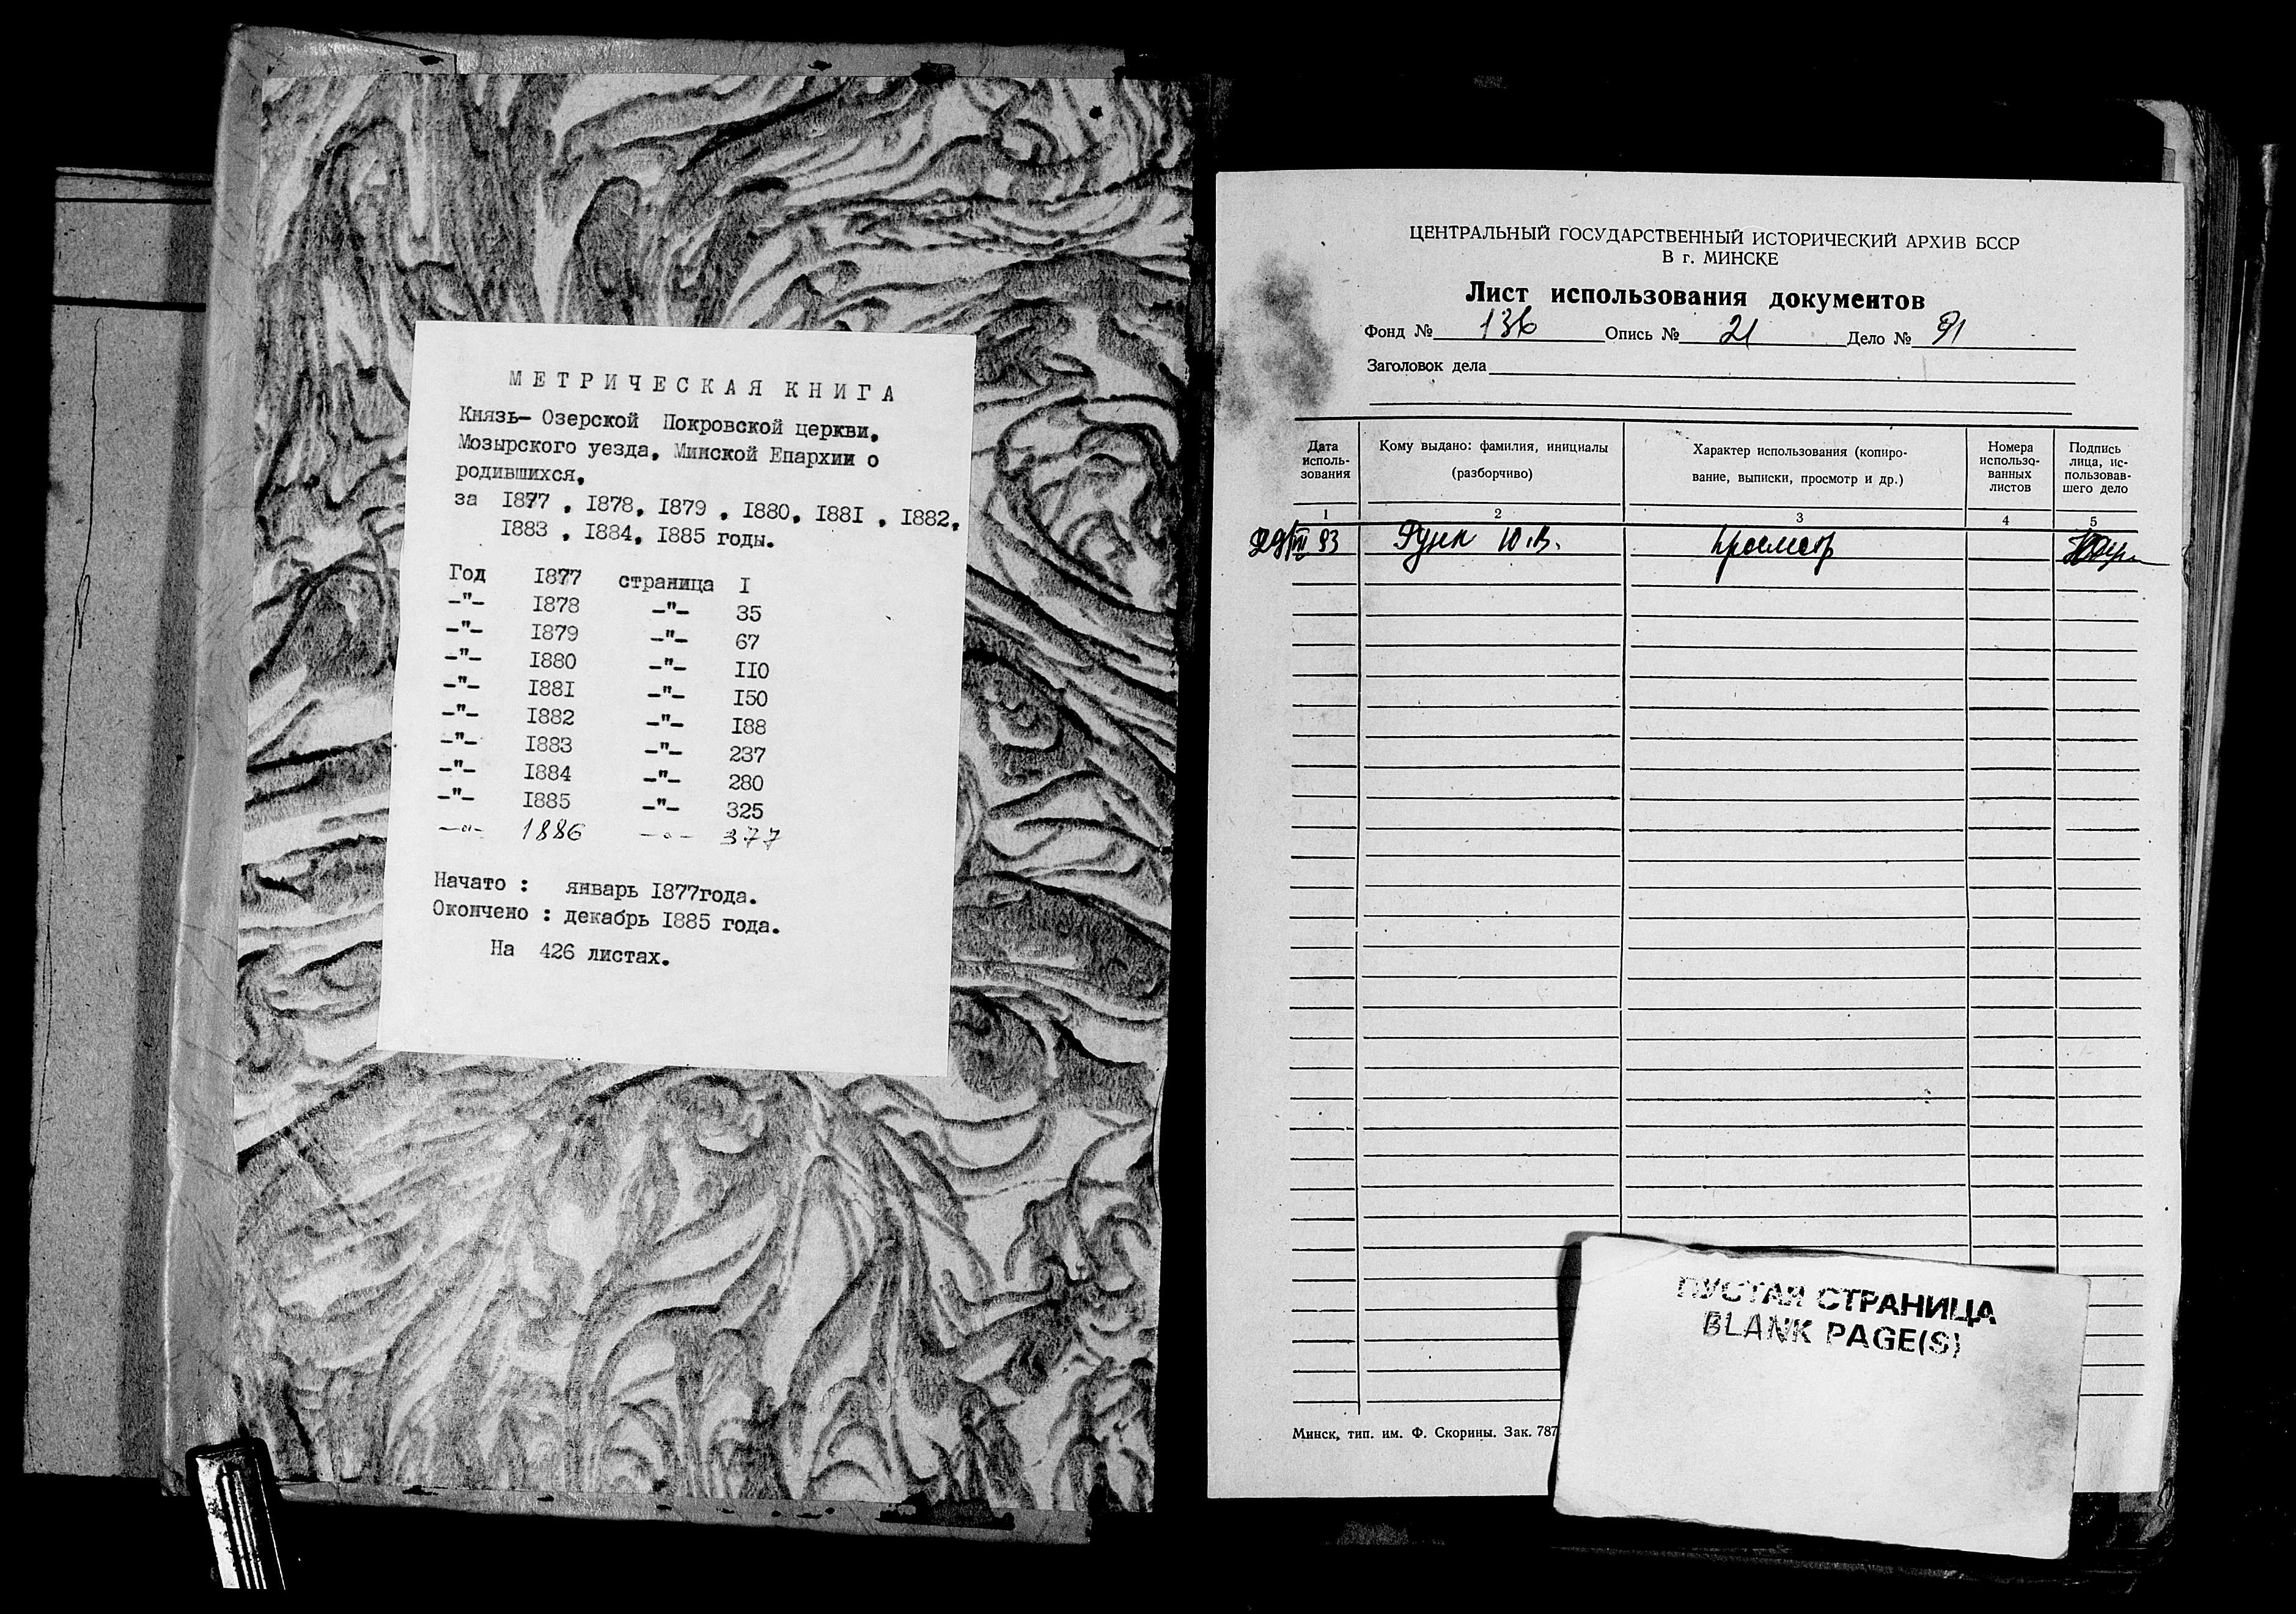 МЕТРИЧЕСКАЯ КНИГА
Князь- Озерской Покровской церкви,
Мозырского уезда, Минской Епархии о
родившихся,
за 1877 , 1878, 1879 , 1880, 1881 , 1882,
1883 , 1884, 1885 годы.
Год 1877 страница 1
-"- 1878 -"- 35
-"- 1879 -"- 67
-"- 1880 -"- 110
-"- 1881 -"- 150
-"- 1882 -"- 188
-"- 1883 -"- 237
-"- 1884 -"- 280
-"- 1885 -"- 325
-"- 1886 -"- 377
Начато : январь 1877года.
Окончено : декабрь 1885 года.
На 426 листах.
ЦЕНТРАЛЬНЫЙ ГОСУДАРСТВЕННЫЙ ИСТОРИЧЕСКИЙ АРХИВ БССР
В г. МИНСКЕ
Лист использования документов
Фонд № 136 Опись № 21 Дело № 91
Заголовок дела
Дата
исполь-
зования
Кому выдано: фамилия, инициалы
(разборчиво)
Характер использования (копиро-
вание, выписки, просмотр и др.)
Номера
использо-
ванных
листов
Подпись
лица, ис-
пользовав-
шего дело
1 2 3 4 5
93 Ю.В. просмотр
Минск, тип. им. Ф. Скорины. Зак. 787
ПУСТАЯ СТРАНИЦА
BLANK PAGE(S)